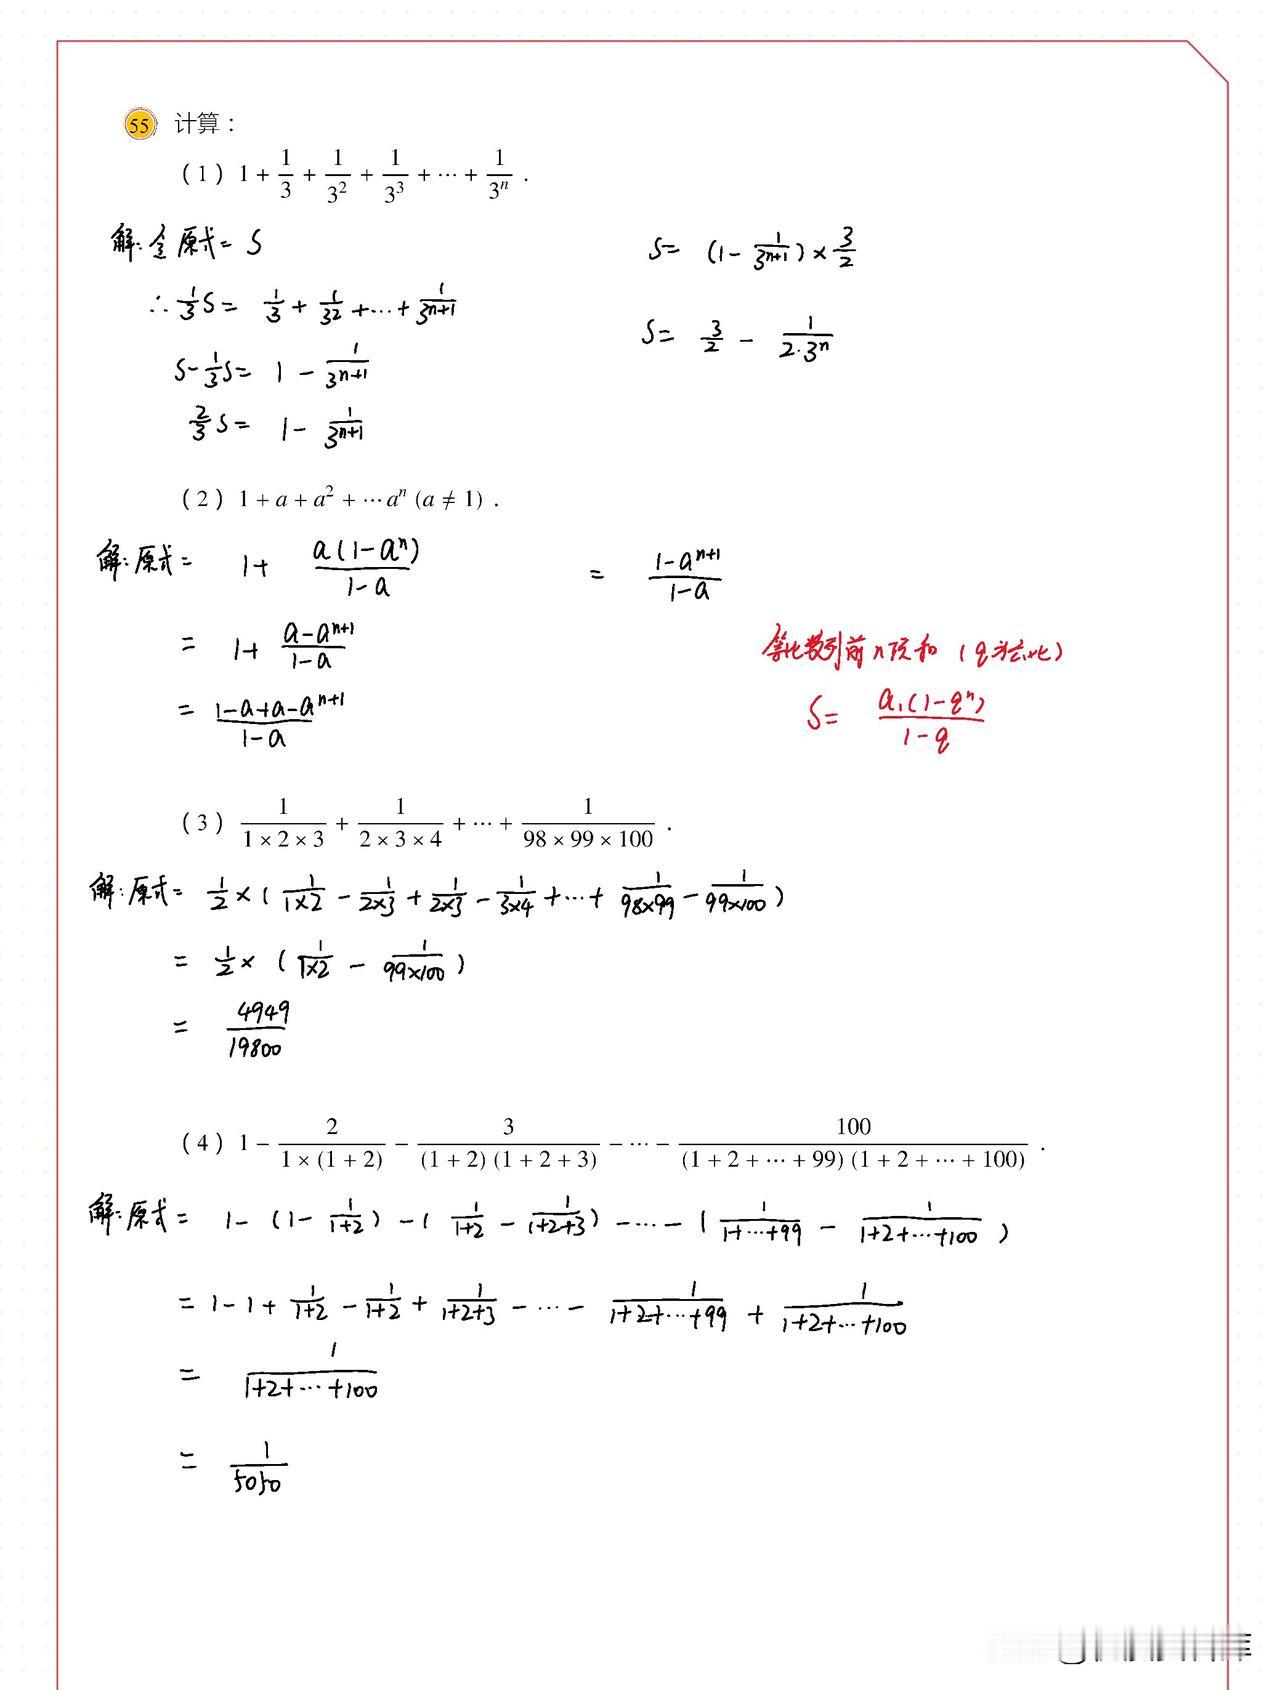 55 计算：
（1）1 + 1/3 + 1/3² + 1/3³ + ⋯ + 1/3ⁿ .
解:令原式= S
∴ 1/3 S= 1/3 + 1/3² +⋯+ 1/3ⁿ⁺¹
S-1/3 S= 1 - 1/3ⁿ⁺¹
2/3 S= 1- 1/3ⁿ⁺¹
S= (1- 1/3ⁿ⁺¹)×3/2
S= 3/2 - 1/(2·3ⁿ)
（2）1 + a + a² + ⋯aⁿ (a ≠ 1) .
解:原式= 1+ a(1-aⁿ)/(1-a)
= 1+ (a-aⁿ⁺¹)/(1-a)
= (1-a+a-aⁿ⁺¹)/(1-a)
= (1-aⁿ⁺¹)/(1-a)
等比数列前n项和 (q为公比)
S= a₁(1-qⁿ)/(1-q)
（3）1/(1 × 2 × 3) + 1/(2 × 3 × 4) + ⋯ + 1/(98 × 99 × 100) .
解:原式= 1/2 ×( 1/(1×2) - 1/(2×3) + 1/(2×3) - 1/(3×4) +⋯+ 1/(98×99) - 1/(99×100) )
= 1/2 × ( 1/(1×2) - 1/(99×100) )
= 4949/19800
（4）1 − 2/(1 × (1 + 2)) − 3/((1 + 2) (1 + 2 + 3)) − ⋯ − 100/((1 + 2 + ⋯ + 99) (1 + 2 + ⋯ + 100)) .
解:原式= 1- (1- 1/(1+2)) -( 1/(1+2) - 1/(1+2+3)) -⋯- ( 1/(1+⋯+99) - 1/(1+2+⋯+100) )
= 1-1+ 1/(1+2) - 1/(1+2) + 1/(1+2+3) -⋯- 1/(1+2+⋯+99) + 1/(1+2+⋯+100)
= 1/(1+2+⋯+100)
= 1/5050